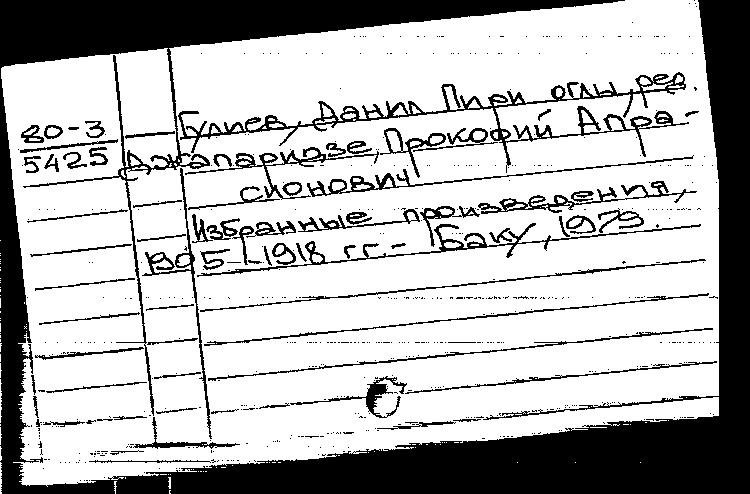 80-3
5425
Гулиев, Данил Пири оглы, ред.
Джапаридзе, Прокофий Апра-
сионович
Избранные произведения,
1905-1918 гг.- Баку, 1979.